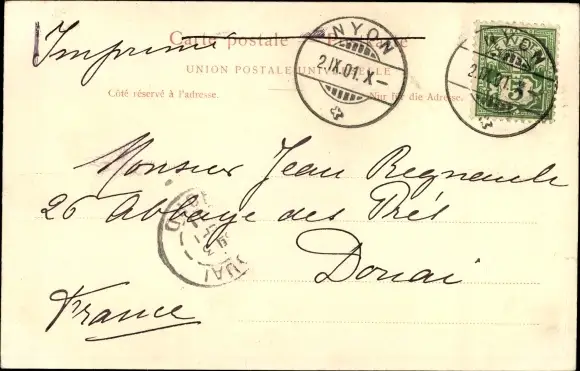 Imprimé
Carte postale
UNION POSTALE UNIVERSELLE
Côté réservé à l'adresse.
Nur für die Adresse.
NYON
2.IX.01.X-
NYON
2.IX.01.X-
5
Monsieur Jean Regnault
26 Abbaye des Prés
Douai
DOUAI
France